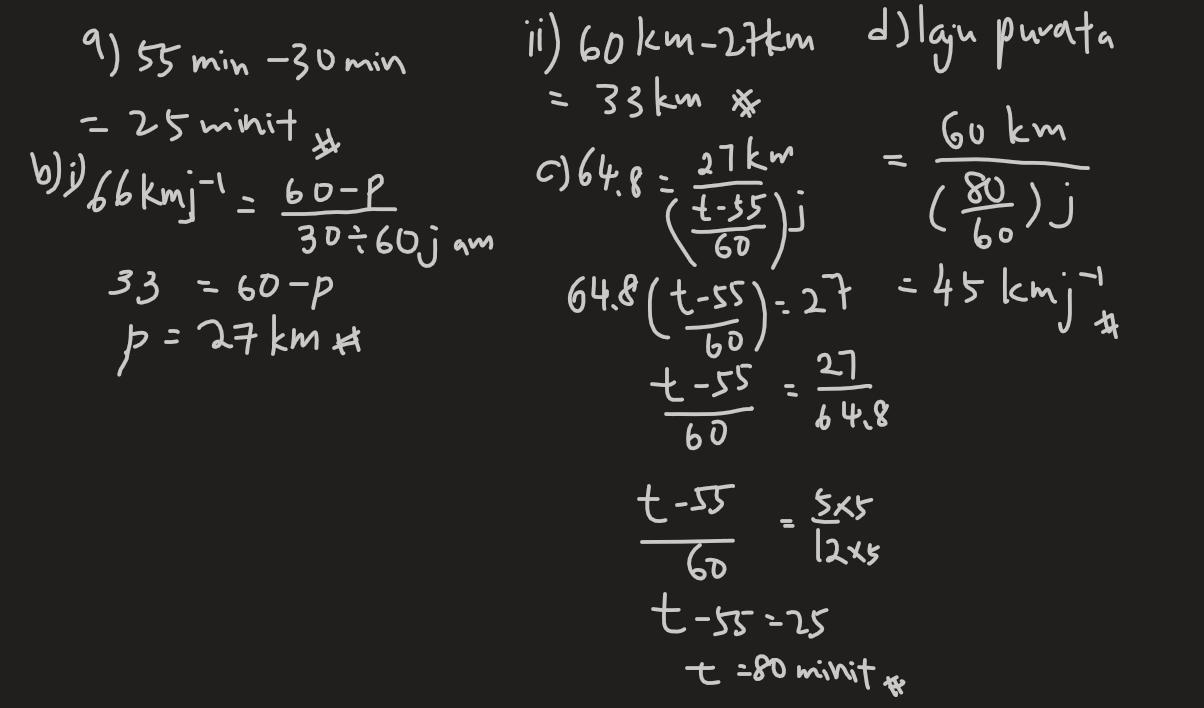 a) 55 min - 30 min
= 25 minit #
b) i) 66 kmj⁻¹ = (60-P)/(30÷60 jam)
33 = 60-p
p = 27 km #
ii) 60 km - 27 km
= 33 km #
c) 64.8 = 27 km/((t-55)/60) j
64.8 ((t-55)/60) = 27
(t-55)/60 = 27/64.8
(t-55)/60 = (5×5)/(12×5)
t-55 = 25
t = 80 minit #
d) laju purata
= 60 km/(80/60) j
= 45 kmj⁻¹ #